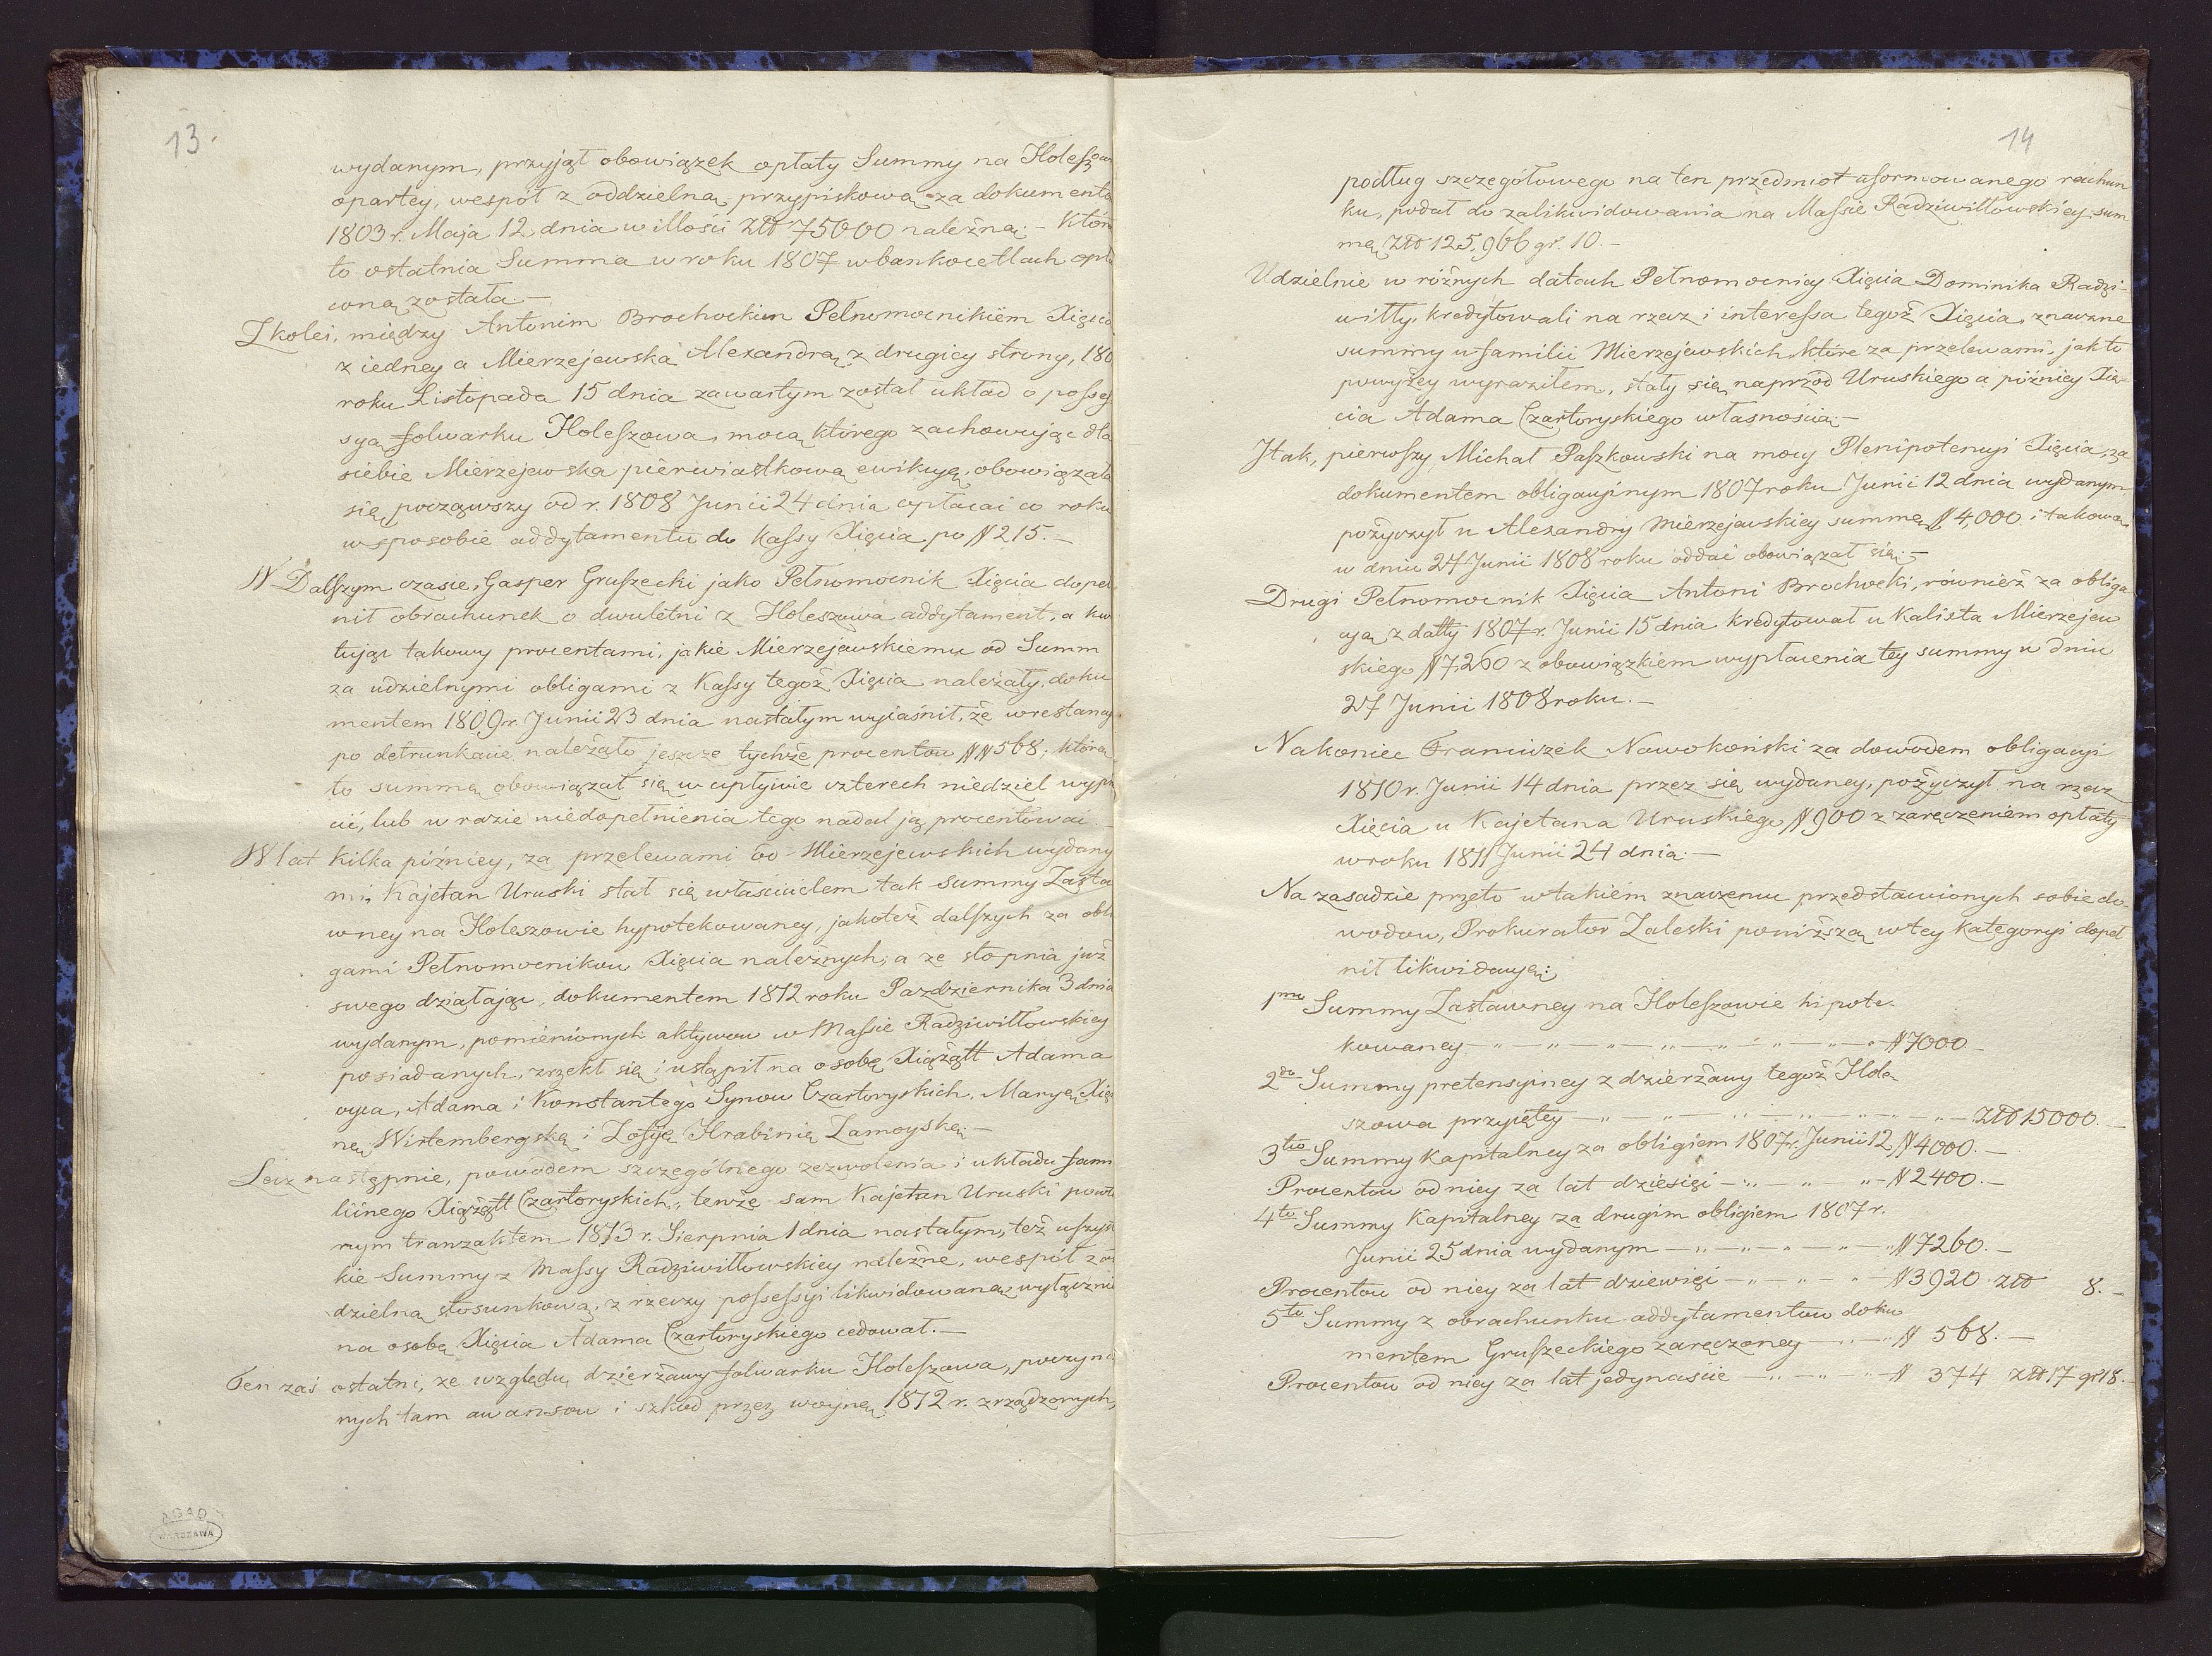 13.
wydanym, przyjął obowiązek opłaty Summy na Holeszow
opartey, wespół z oddzielną przypiskową za dokumenta
1803 r. Maja 12 dnia w illości Złt 75000 należną. – Któr
to ostatnia Summa w roku 1807 w bankocetlach opła
coną została. –
Zkolei, między Antonim Brochockim Pełnomocnikiem Xięcia
z iedney a Mierzejewska Alexandrą z drugiey strony, 180
roku Listopada 15 dnia zawartym został układ o posses
syą folwarku Holeszowa, mocą którego zachowując dla
siebie Mierzejewska pierwiastkową ewikcyą, obowiązała
się, począwszy od r. 1808 Junii 24 dnia opłacać co roku
w sposobie addytamentu do Kassy Xięcia po # 215. –
W Dalszym czasie, Gasper Gruszecki jako Pełnomocnik Xięcia dopeł
nił obrachunek o dwuletni z Holeszowa addytament, a kwi
tując takowy procentami, jakie Mierzejewskiemu od Summ
za udzielnymi obligami z Kassy tegoż Xięcia należały, doku
mentem 1809 r. Junii 23 dnia nastałym wyiaśnił, że w restancy
po detrunkacie należało jeszcze tychże procentow ## 568, którą
to summą obowiązał się w upływie czterech niedziel wypła
cić, lub w razie niedopełnienia tego nadal ją procentować. –
W lat kilka późniey, za przelewami od Mierzejewskich wydany
mi, Kajetan Uruski stał się właścicielem tak Summy Zasta
wney na Holeszowie hypotekowaney, jakoteż dalszych za obli
gami Pełnomocnikow Xięcia należnych, a ze stopnia już
swego działając, dokumentem 1812 roku Pazdziernika 3 dnia
wydanym, pomienionych aktywow w Massie Radziwiłłowskiey
posiadanych, zrzekł się i ustąpił na osobę Xiążątt Adama
oyca, Adama i Konstantego Synow Czartoryskich, Maryą Xię
nę Wirtembergską i Zofię Hrabinię Zamoyską. –
Lecz następnie, powodem szczególnego zezwolenia i układu fami
liinego Xiążątt Czartoryskich, tenże sam Kajetan Uruski powto
rnym tranzaktem 1813 r. Sierpnia 1 dnia nastałym, też wszyst
kie Summy z Massy Radziwiłłowskiey należne, wespół z od
dzielną stosunkową, z rzeczy possessyi likwidowaną wyłącznie
na osobę Xięcia Adama Czartoryskiego cedował. –
Ten zaś ostatni, ze względu dzierżawy folwarku Holeszowa, poczynio
nych tam awansow i szkod przez woynę 1812 r. zrządzonych,
ADAD
WARSZAWA
14
podług szczegółowego na ten przedmiot aformowanego rachun
ku, podał do zalikwidowania na Massie Radziwiłłowskiey sum
mą Złt 125,966 gr. 10. –
Udzielnie w różnych datach Pełnomocnicy Xięcia Dominika Radzi-
wiłły, kredytowali na rzecz i interessa tegoż Xięcia, znaczne
summy u familii Mierzejewskich, które za przelewami, jak to
powyżey wyraziłem, stały się naprzod Uruskiego a późniey Xię-
cia Adama Czartoryskiego własnością. –
Itak, pierwszy Michał Paszkowski na mocy Plenipotencyi Xięcia, za
dokumentem obligacyinym 1807 roku Junii 12 dnia wydanym
pożyczył u Alexandry Mierzejewskiey summę # 4,000 i takową
w dniu 24 Junii 1808 roku oddać obowiązał się. –
Drugi Pełnomocnik Xięcia Antoni Brochocki, również za obliga
cyą z datty 1807 r. Junii 15 dnia kredytował u Kalixta Mierzejew
skiego # 7,260 z obowiązkiem wypłacenia tey summy w dniu
27 Junii 1808 roku. –
Nakoniec Franciszek Nowokoński za dowodem obligacyi
1810 r. Junii 14 dnia przez się wydaney, pożyczył na rzecz
Xięcia u Kajetana Uruskiego # 900 z zaręczeniem opłaty
w roku 1811 Junii 24 dnia. –
Na zasadzie przeto w takiém znaczeniu przedstawionych sobie do-
wodow, Prokurator Zaleski poniższą w tey kategoryi dopeł
nił likwidacyą:
1mo Summy Zastawney na Holeszowie hipote-
kowaney – „ – „ – „ – „ – „ – „ – „ – # 7000. –
2do Summy pretensyiney z dzierżawy tegoż Hole
szowa przyiętey – „ – „ – „ – „ – „ – „ – Złt 15000. –
3tio Summy Kapitalney za obligiem 1807 r. Junii 12 # 4000. –
Procentow od niey za lat dziesięć – „ – „ – „ – # 2400. –
4to Summy Kapitalney za drugim obligiem 1807 r.
Junii 25 dnia wydanym – „ – „ – „ – „ – # 7260. –
Procentow od niey za lat dziewięć – „ – „ – „ – # 3920 Złt 8. –
5to Summy z obrachunku addytamentow doku
mentem Gruszeckiego zaręczoney – „ – # 568. –
Procentow od niey za lat jedynaście – „ – „ – # 374 Złt 17 gr 18. –